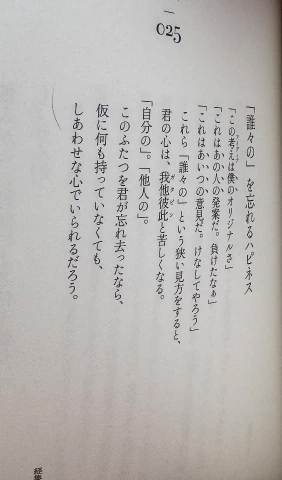 025
「誰々の」を忘れるハピネス
「この考えは僕のオリジナルさ」
「これはあの人の発案だ。負けたなぁ」
「これはあいつの意見だ。けなしてやろう」
これら「誰々の」という狭い見方をすると、
君の心は、我他彼此と苦しくなる。
「自分の」。「他人の」。
このふたつを君が忘れ去ったなら、
仮に何も持っていなくても、
しあわせな心でいられるだろう。
経集